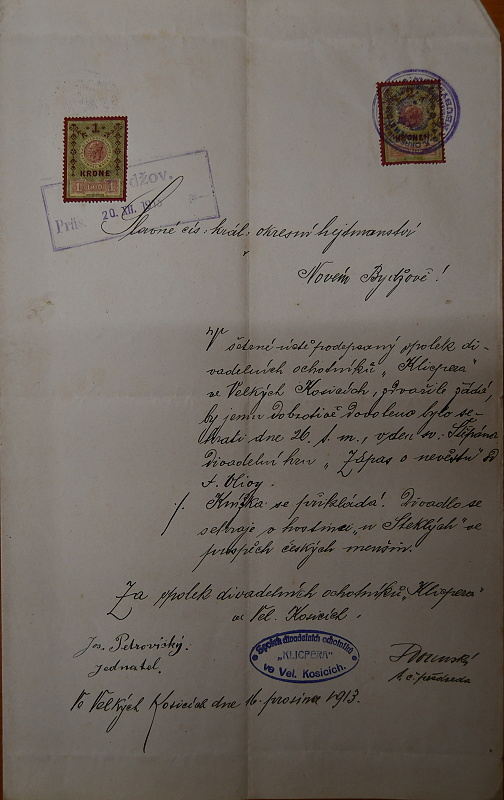 1
KRONE
1 1
KRONEN
džov.
20. XII. 1913
Präs
Slavné cís. král. okresní hejtmanství
v
Novém Bydžově!
V šetrné úctě podepsaný spolek di-
vadelních ochotníků „Klicpera"
ve Velkých Kosicích, zdvořile žádá,
by jemu dobrotivě dovoleno bylo se-
hráti dne 26. t. m., v den sv. Štěpána
divadelní hru „Zápas o nevěstu" od
F.
./. Knížka se přikládá! Divadlo se
sehraje v hostinci „u Steklých" ve
prospěch českých menšin.
Za spolek divadelních ochotníků „Klicpera"
ve Vel. Kosicích.
Jos. Petrovický.
jednatel.
Spolek divadelních ochotníků
„KLICPERA"
ve Vel. Kosicích.
t. č. předseda
Ve Velkých Kosicích dne 16. prosince 1913.